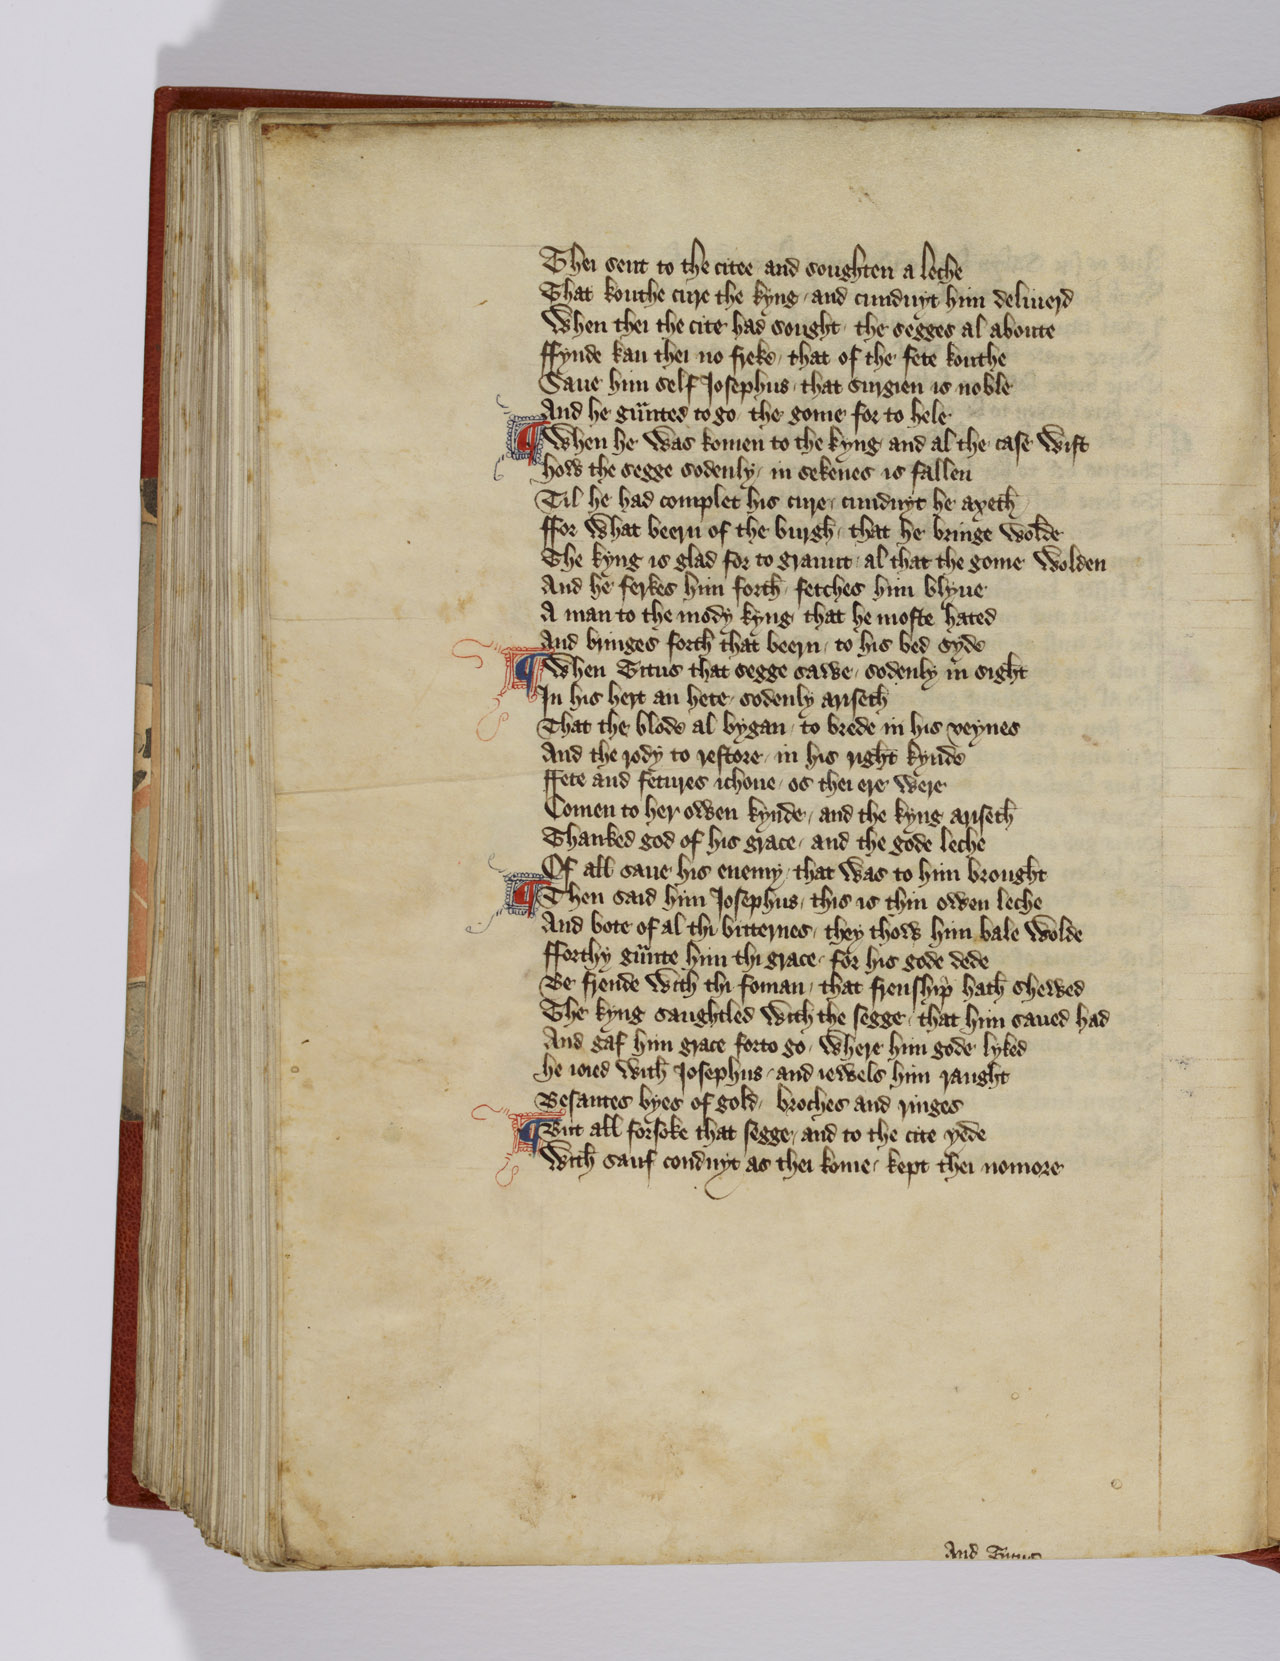 Thei sent to the citee and soughten a leche
That kouthe cure the kyng / and cunduyt him deliuerd
When thei the cite had sought / the segges al aboute
Ffynde kan thei no freke / that of the fete kouthe
Saue him self Josephus / that surgien is noble
And he g​ᵃunted to go / the gome for to hele
¶ When he was komen to the kyng / and al the case wist
How the segge sodenly / in sekenes is fallen
Til he had complet his cure / cunduyt he axeth
Ffor what beern of the burgh / that he bringe wolde
The kyng is glad for to graunt / al that the gome wolden
And he ferkes him forth / fetches him blyue
A man to the mody kyng / that he moste hated
And bringes forth that beern / to his bed syde
¶ When Titus that segge sawe / sodenly in sight
In his hert an hete / sodenly ariseth
That the blode al bygan / to brede in his veynes
And the rody to restore / in his right kynde
Ffete and fetures ichone / os thei ere were
Comen to her owen kynde / and the kyng ariseth
Thanked god of his grace / and the gode leche
Of all saue his enemy / that was to him brought
¶ Then said him Josephus / this is thin owen leche
And bote of al thi bitternes / they thow him bale wolde
Fforthy gᵃunte him thi grace / for his gode dede
Be frende with thi foman / that frenship hath shewed
The kyng saughtled with the segge / that him saued had
And gaf him grace forto go / where him gode lyked
he ioied with Josephus / and iewels him raught
Besantes byes of gold / broches and ringes
¶ But all forsoke that segge / and to the cite yede
With sauf conduyt as thei kome / kept thei nomore
And Titus